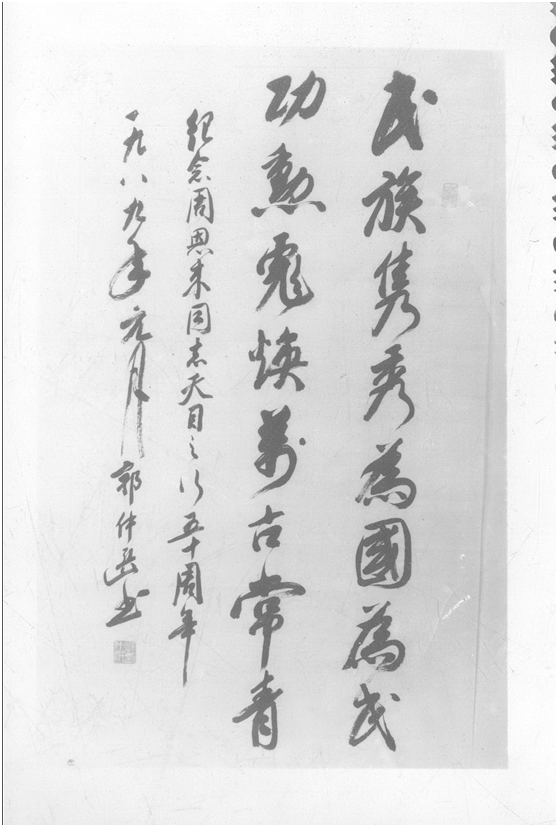 民族隽秀為國為民
功勳彪焕萬古常青
纪念周恩来同志天目之行五十周年
一九八九年元月 郭仲岳书